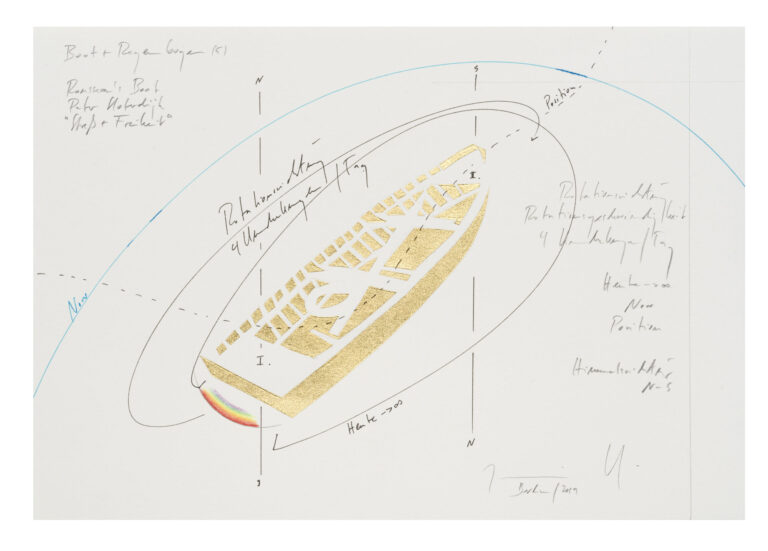 Boot + Regenbogen (5)
Rousseau's Boot
Peter Sloterdijk
"Streß + Freiheit"
N
S
Position
Rotationsrichtung
4 Umdrehungen / Tag
II.
Now
I.
Rotationsrichtung
Rotationsgeschwindigkeit
4 Umdrehungen / Tag
Heute -> ∞
Now
Position
Himmelsrichtung
N-S
Heute -> ∞
N
S
Berlin / 2019